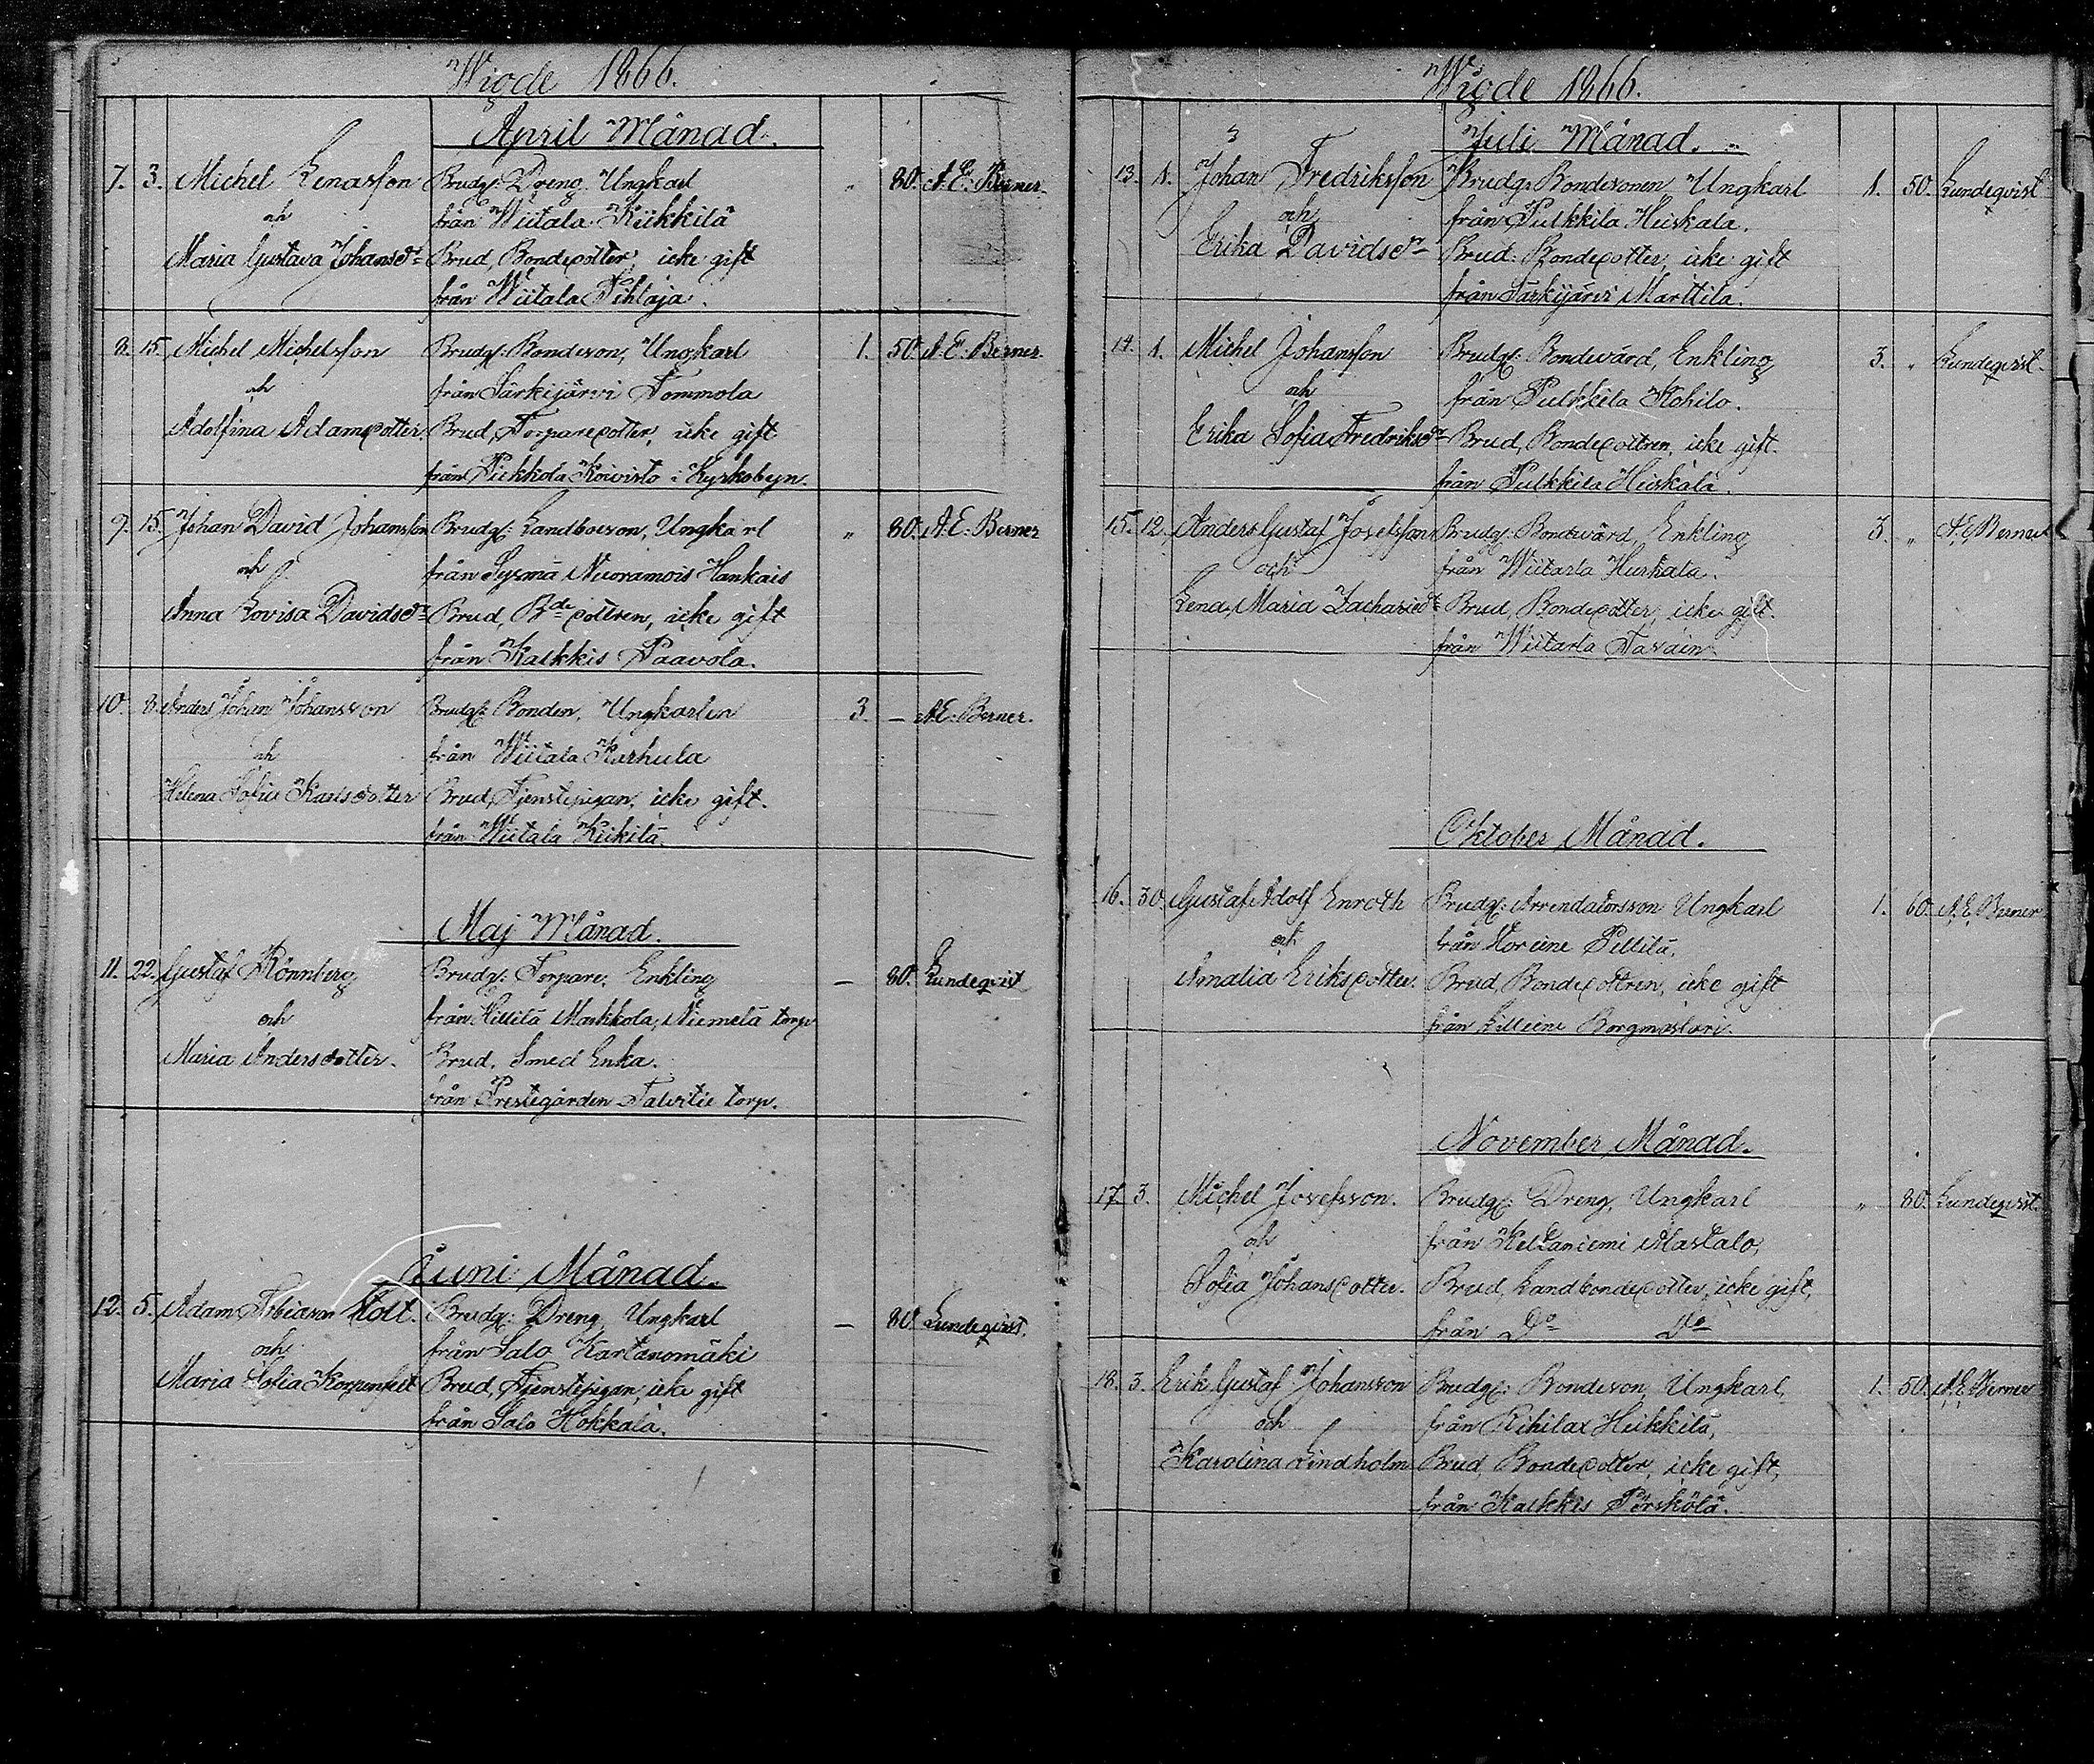 Wigde 1866.
April Månad.
7. 3. Michel Lenasson Brudg: Dreng Ungkarl " 80. A. E. Berner.
och från Wiitala Kiikkilä
Maria Gustava Johansdr Brud, Bondedotter, icke gift
från Wiitala Pihlaja.
8. 15. Michel Michelsson Brudg: Bondeson, Ungkarl 1. 50. A. E. Berner.
och från Särkijärvi Tommola
Adolfina Adamsdotter. Brud, Torparedotter, icke gift
från Koivisto i Kyrkobyn.
9. 15. Johan David Johansson Brudg: Landboeson, Ungkarl " 80. A. E. Berner
och från Sysmä Nuoramois Hankais
Anna Lovisa Davidsdr Brud, Bde dottren, icke gift
från Kalkkis Paavola.
10. 8. Anders Johan Johansson Brudg: Bonden, Ungkarlen 3. — A. E. Berner.
och från Wiitala Karhula
Helena Sofia Karlsdotter Brud, Tjenstepigan, icke gift.
från Wiitala Kiikilä.
Maj Månad.
11. 22. Gustaf Rönnberg Brudg: Torpare, Enkling — 80. Lundeqvist
och från Hillilä Markkola, Niemelä torp
Maria Andersdotter. Brud, Smed Enka.
från Prestegården Talvitie torp.
Juni Månad.
12. 5. Adam Brudg: Dreng, Ungkarl — 80. Lundeqvist.
och från Salo Kartanomäki
Maria Sofia Brud, Tjenstepigan, icke gift
från Salo Hokkala.
Wigde 1866.
Juli Månad.
13. 1. Johan Fredriksson Brudg: Bondesonen Ungkarl 1. 50. Lundeqvist
och från Pulkkila Huskala.
Erika Davidsdr Brud: Bondedotter, icke gift
från Särkijärvi Marttila.
14. 1. Michel Johansson Brudg: Bondevärd, Enkling 3. " Lundeqvist.
och från Pulkkila Kohilo.
Erika Sofia Fredriksdr Brud, Bondedottren, icke gift.
från Pulkkila Huskala.
15. 12. Anders Gustaf Josefsson Brudg: Bondevärd, Enkling 3. " A. E. Berner
och från Wiitarla Hurkala.
Lena Maria Zachariedr Brud, Bondedotter, icke gift.
från Wiitarla
Oktober Månad.
16. 30. Gustaf Adolf Enroth Brudg: Arrendatorsson Ungkarl 1. 60. A. E. Berner
och från Pellilä,
Amalia Eriksdotter. Brud, Bondedottren, icke gift
från Borgmastari.
November Månad.
17. 3. Michel Josefsson. Brudg: Dreng, Ungkarl " 80. Lundeqvist.
och från Keltaniemi Mastalo,
Sofia Johansdotter. Brud, Landbondedotter, icke gift,
från Do Do
18. 3. Erik Gustaf Johansson Brudg: Bondeson, Ungkarl, 1. 50. A. E. Berner
och från Kihilax Heikkilä,
Karolina Lindholm Brud, Bondedotter, icke gift,
från Kalkkis Pörskölä.